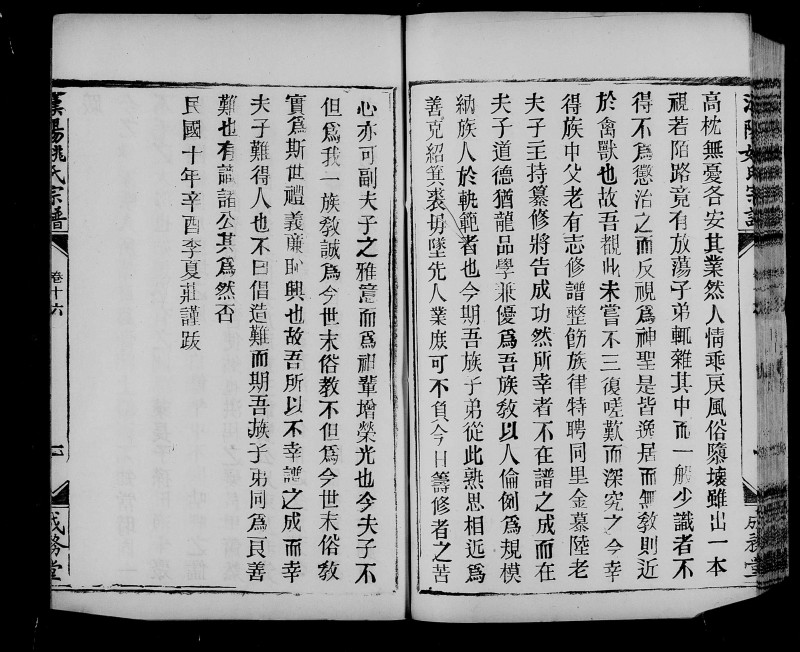 高枕無憂各安其業然人情乖戾風俗隳壞雖出一本
視若陌路竟有放蕩子弟輒雜其中而一般少識者不
得不爲懲治之而反視爲神聖是皆逸居而無教則近
於禽獸也故吾覩此未嘗不三復嗟歎而深究之今幸
得族中父老有志修譜整飭族律特聘同里金慕陸老
夫子主持纂修將告成功然所幸者不在譜之成而在
夫子道德猶龍品學兼優爲吾族敎以人倫例爲規模
納族人於軌範者也今期吾族子弟從此熟思相近爲
善克紹箕裘毋墜先人業庶可不負今日籌修者之苦
成務堂
漢陽姚氏宗譜
卷十六
成務堂
心亦可副夫子之雅意而爲神輩增榮光也今夫子不
但爲我一族敎誠爲今世末俗敎不但爲今世末俗敎
實爲斯世禮義廉恥興也故吾所以不幸譜之成而幸
夫子難得人也不曰倡造難而期吾族子弟同爲良善
難也有識諸公其爲然否
民國十年辛酉季夏莊謹跋